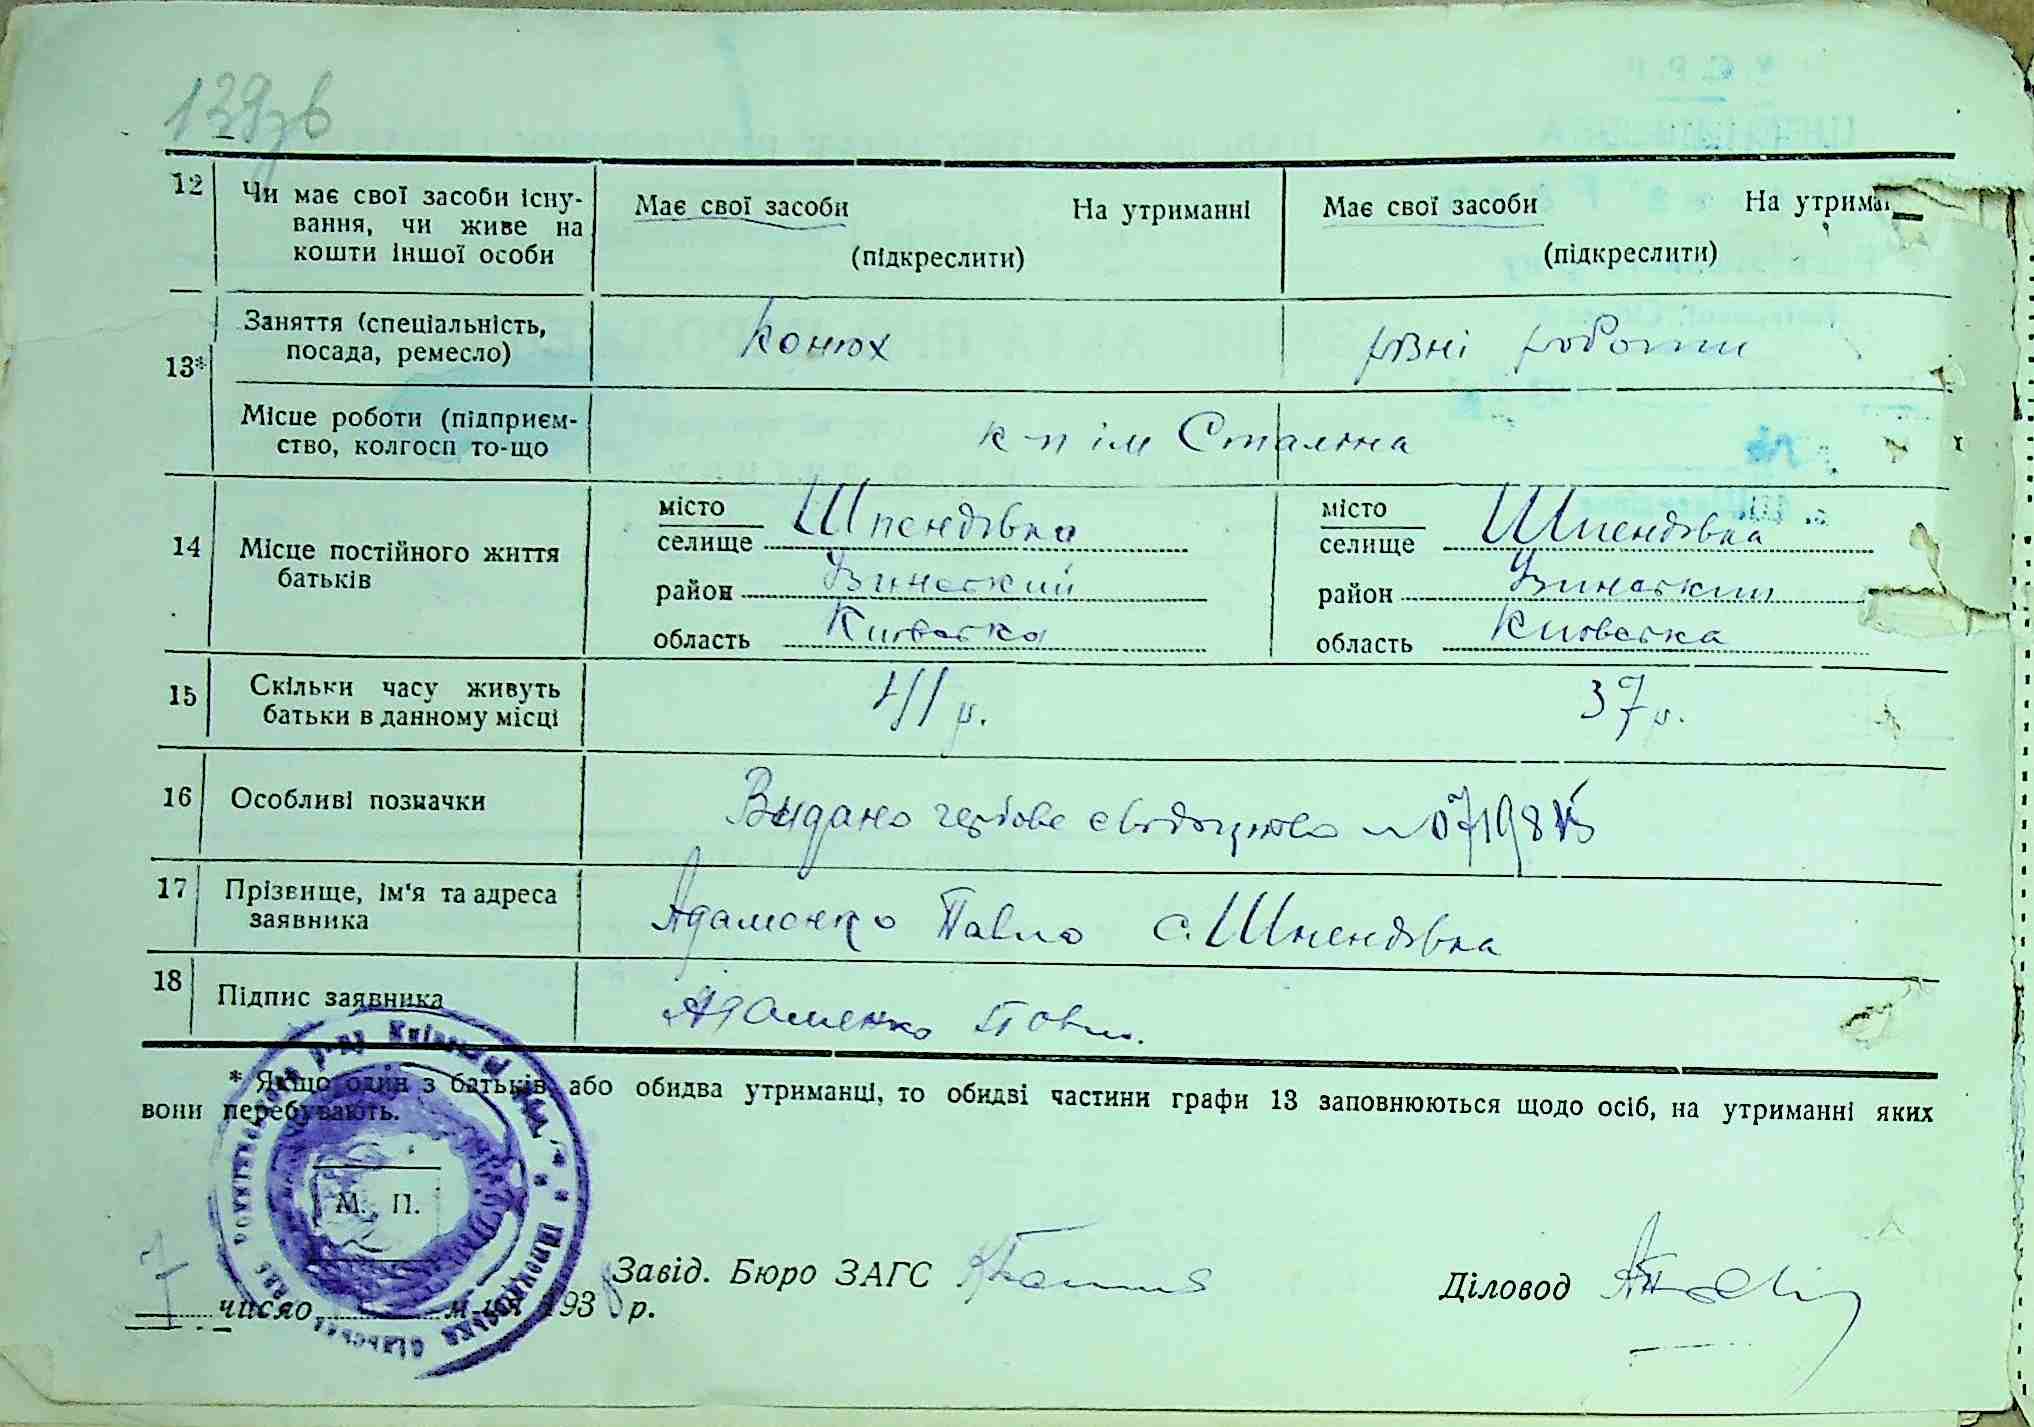 139зв
12 Чи має свої засоби існу-
вання, чи живе на
кошти іншої особи
Має свої засоби На утриманні
(підкреслити)
Має свої засоби На утрима
(підкреслити)
13* Заняття (спеціальність,
посада, ремесло)
Конюх
різні роботи
Місце роботи (підприєм-
ство, колгосп то-що
к-п ім Сталіна
14 Місце постійного життя
батьків
місто
селище Шпендівка
район Узинський
область Київська
місто
селище Шпендівка
район Узинський
область Київська
15 Скільки часу живуть
батьки в данному місці
41 р.
37 р.
16 Особливі позначки
Видано гербове свідоцтво №
17 Прізвище, ім'я та адреса
заявника
Адаменко Павло с. Шпендівка
18 Підпис заявника
Адаменко Павло.
* Якщо один з батьків або обидва утриманці, то обидві частини графи 13 заповнюються щодо осіб, на утриманні яких
вони перебувають.
М. П.
Завід. Бюро ЗАГС
Діловод
7 число м-ця 1938 р.